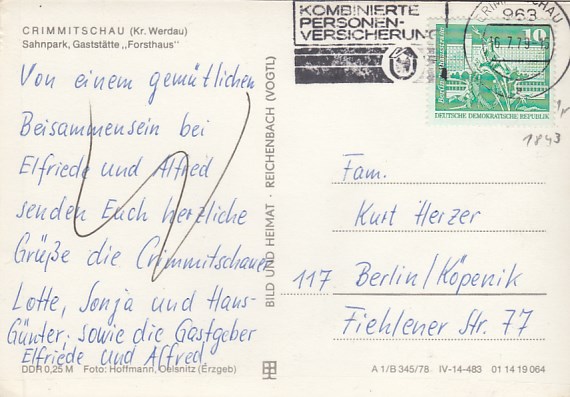 CRIMMITSCHAU (Kr. Werdau)
Sahnpark, Gaststätte „Forsthaus"
Von einem gemütlichen
Beisammensein bei
Elfriede und Alfred
senden Euch herzliche
Grüße die Crimmitschauer
Lotte, Sonja und Hans-
Günter, sowie die Gastgeber
Elfriede und Alfred.
DDR 0,25 M Foto: Hoffmann, Oelsnitz (Erzgeb)
BILD UND HEIMAT · REICHENBACH (VOGTL)
KOMBINIERTE
PERSONEN-
VERSICHERUNG
CRIMMITSCHAU
963
16.7.79-16
10
DEUTSCHE DEMOKRATISCHE REPUBLIK
1843
Fam.
Kurt Herzer
117 Berlin/Köpenik
Fiehlener Str. 77
A 1/B 345/78 IV-14-483 01 14 19 064